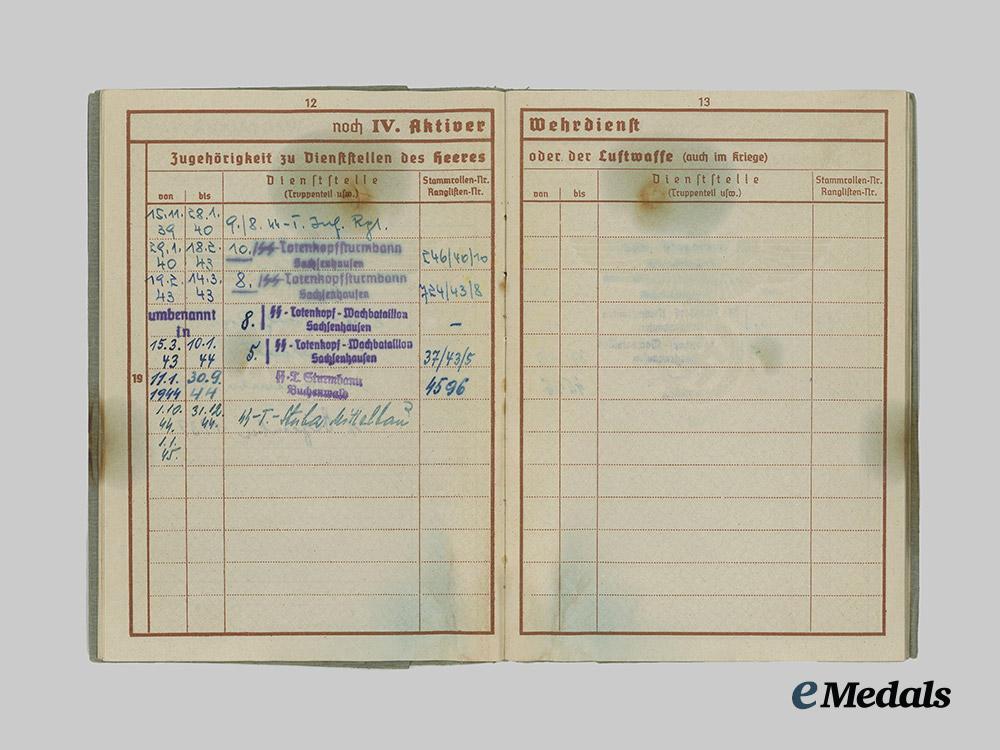 12
noch IV. Aktiver
Zugehörigkeit zu Dienststellen des Heeres
von bis Dienststelle (Truppenteil usw.) Stammrollen-Nr. Ranglisten-Nr.
15.11. 39 28.1. 40 9./8. SS-T. Inf. Rgt.
29.1. 40 18.2. 43 10./SS-Totenkopfsturmbann Sachsenhausen 246/40/10
19.2. 43 14.3. 43 8. /SS-Totenkopfsturmbann Sachsenhausen 724/43/8
umbenannt in 8. SS-Totenkopf-Wachbataillon Sachsenhausen –
15.3. 43 10.1. 44 5. SS-Totenkopf-Wachbataillon Sachsenhausen 37/43/5
19 11.1. 1944 30.9. 44 SS-T. Sturmbann Buchenwald 4596
1.10. 44. 31.12. 44. SS-T-Stuba Mittelbau
1.1. 45.
13
Wehrdienst
oder der Luftwaffe (auch im Kriege)
von bis Dienststelle (Truppenteil usw.) Stammrollen-Nr. Ranglisten-Nr.
eMedals